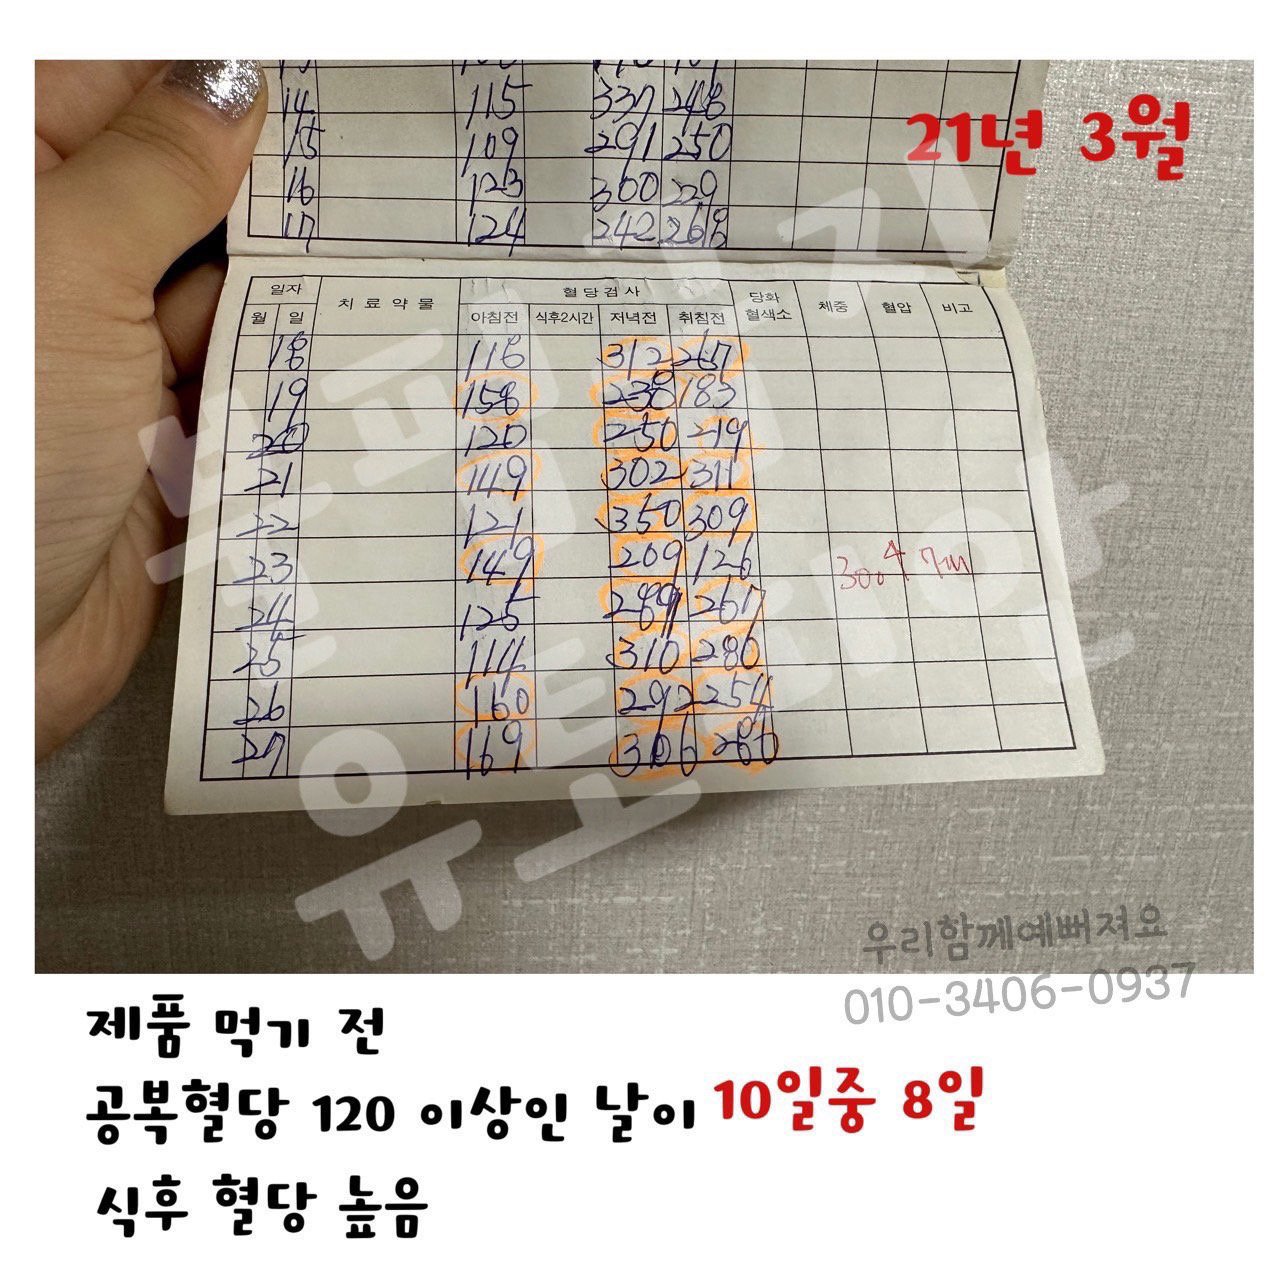 21년 3월
14 115 337 248
15 109 291 250
16 123 300 229
17 124 242 268
일자 치료약물 혈당검사 당화혈색소 체중 혈압 비고
월 일 아침전 식후2시간 저녁전 취침전
18 118 312 267
19 158 238 183
20 120 250 219
21 149 302 311
22 121 350 309
23 149 209 126
24 125 289 267
25 114 310 280
26 160 292 254
27 169 306 280
우리함께예뻐져요
010-3406-0937
제품 먹기 전
공복혈당 120 이상인 날이 10일중 8일
식후 혈당 높음